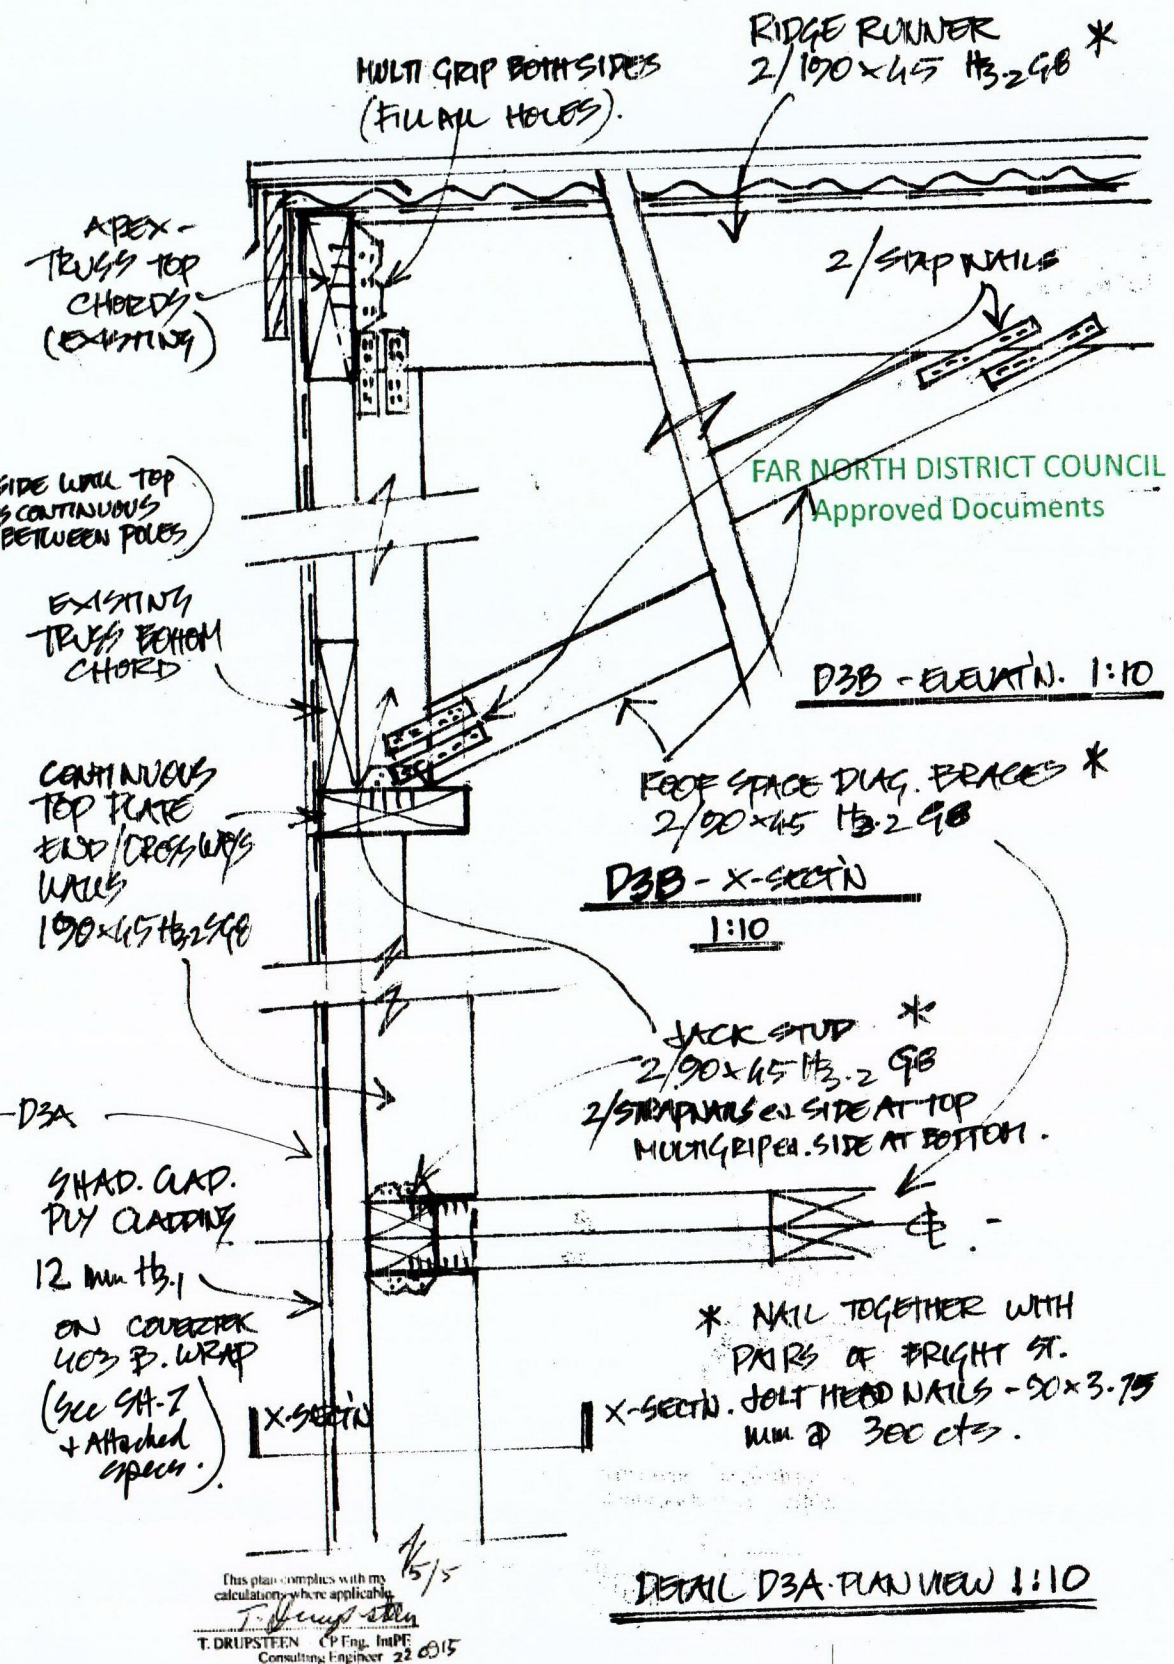 RIDGE RUNNER *
2/190x45 H3.2 G8
MULTI GRIP BOTH SIDES
(FILL ALL HOLES).
APEX-
TRUSS TOP
CHORDS
(EXISTING)
2/STRAP NAILS
SIDE WALL TOP
CONTINUOUS
BETWEEN POLES)
FAR NORTH DISTRICT COUNCIL
Approved Documents
EXISTING
TRUSS BOTTOM
CHORD
D3B - ELEVAT'N. 1:10
CONTINUOUS
TOP PLATE
END/CROSSWAYS
WALLS
190x45 H3.2 SG8
ROOF SPACE DIAG. BRACES *
2/90x45 H3.2 G8
D3B - X-SECT'N
1:10
JACK STUD *
2/90x45 H3.2 G8
2/STRAPNAILS ea SIDE AT TOP
MULTIGRIP ea. SIDE AT BOTTOM.
-D3A
SHAD. CLAD.
PLY CLADDING
12 mm H3.1
ON COVERTEK
403 B. WRAP
(See SH-7
+ Attached
specs.)
* NAIL TOGETHER WITH
PAIRS OF BRIGHT ST.
JOLT HEAD NAILS - 90x3.15
mm @ 300 cts.
X-SECT'N
X-SECT'N.
5/5
This plan complies with my
calculations where applicable
T. Drupsteen
T. DRUPSTEEN CP Eng. IntPE
Consulting Engineer 22 0915
DETAIL D3A PLAN VIEW 1:10